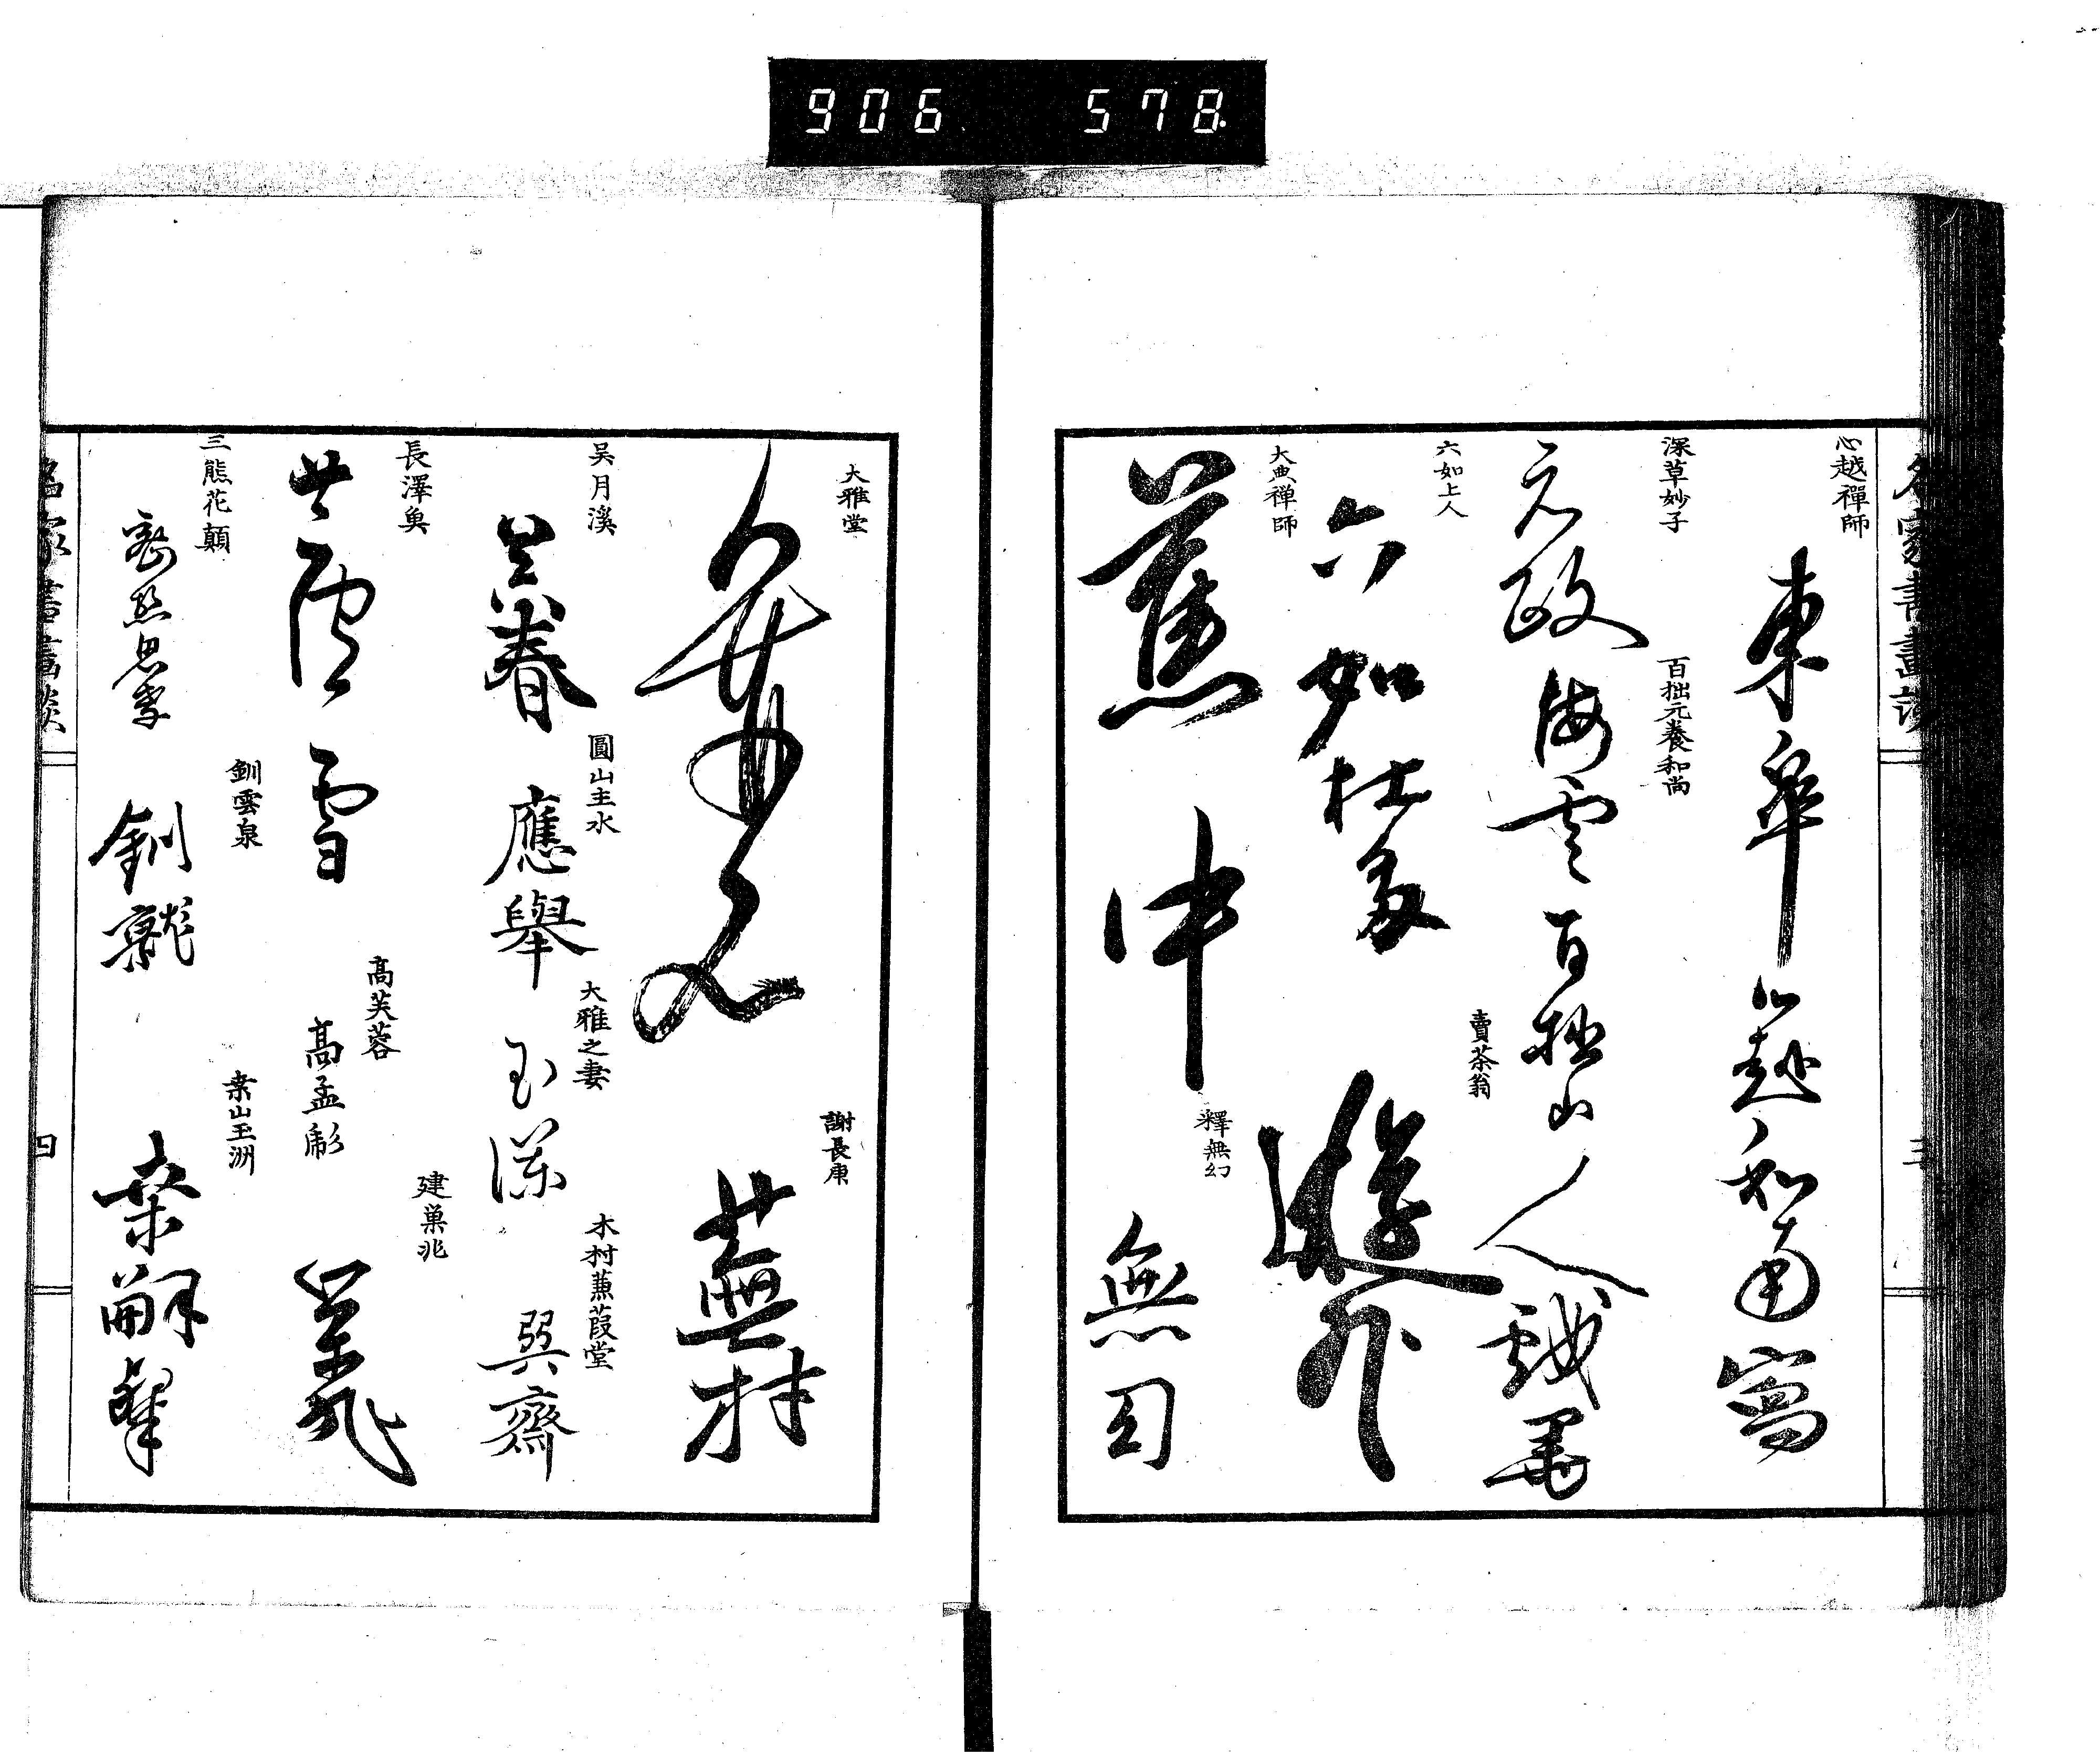 906 578
名家書畫談
三
心越禪師
東皐心越和南寫
深草妙子
元政
百拙元養和尚
海雲百拙山人戯墨
六如上人
六如杜多
賣茶翁
遊外
大典禅師
蕉中
釋無幻
無幻
大雅堂
謝長庚
蕪村
吴月溪
吴春
圓山主水
應舉
大雅之妻
玉瀾
木村蒹葭堂
巽齋
長澤魚
芦雪
高芙蓉
高孟彪
建巣兆
巣兆
三熊花顛
思孝
釧雲泉
釧就
桒山玉洲
桒嗣粲
名家書畫談
四